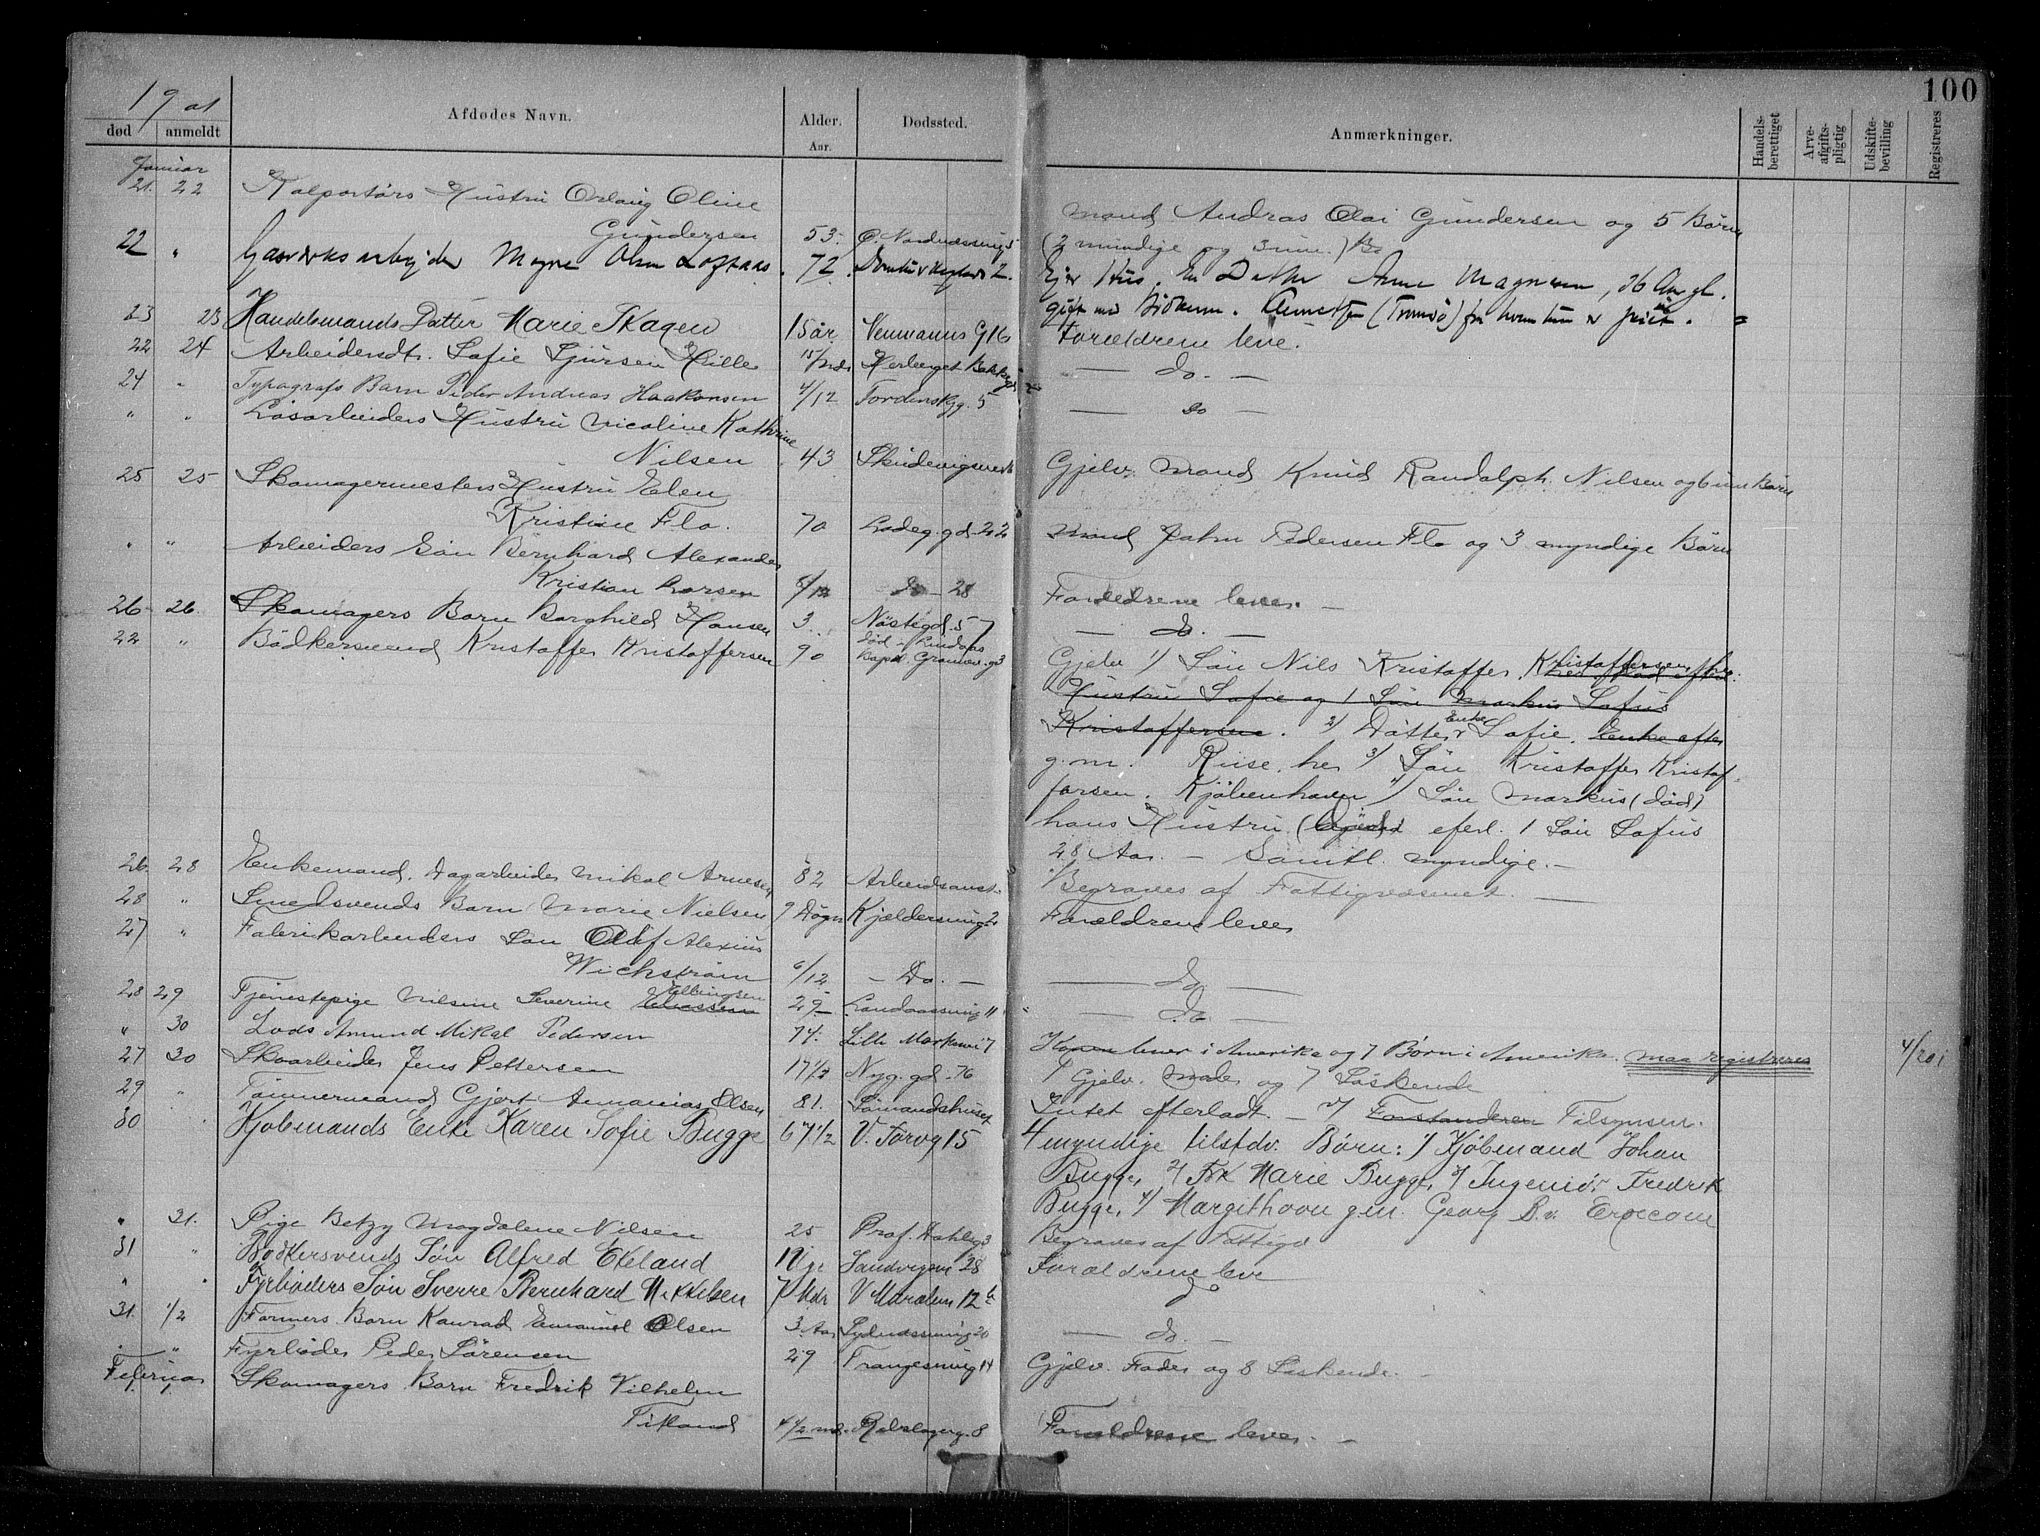 100
1901
død anmeldt Afdødes Navn. Alder. Aar. Dødssted. Anmærkninger. Handelsberettiget Arveafgiftspligtig Udskiftebevilling Registreres
Januar
21. 22 Kolportørs Hustru Oline
Gundersen 53. 5 Mand Andras Olai Gundersen og 5 Børn
(2 mundige og 3 um.)
22 " Gasværksarbejder Mogne Olsen Loftaas. 72. 2. Ejer Hus. En Datter Anne Magnesen, 36 Aar gl.
gift med (Tromsø) fra hvem hun er
23 23 Handelsmands Datter Marie Skagen 15 år Neumanns G 16 Forældrene leve.
22 24 Arbeidersdt. Sofie Sjursen Hille 15/Mdr Herberget Bakkegd — do. —
24 " Typografs Barn Peder Andreas Haakonsen 4/12 Tordenskjg. 5 — do —
" " Løsarbeiders Hustru Nicoline Kathrine
Nilsen 43 Gjelv. Mand Knud Randolph Nilsen og 6 um Børn
25 25 Skomagermesters Hustru Elen
Kristine Flo. 70 Ladeg.gd. 22 Mand John Pedersen Flo og 3 myndige Børn
" " Arbeiders Søn Bernhard Alexander
Kristian Larsen 8/12 do — 28 Forældrene lever. —
26 26. Skomagers Barn Borghild Hansen 3 Nøstegd. 57 — do. —
22 " Bødkersvend Kristoffer Kristoffersen 90 død i Lindaas
Gjelv 1/ Søn Nils Kristoffer Kristoffersen
Hustru Sofie og 1 Søn Markus Lofus
Kristoffersen. 2/ Datter Enke Sofie. Enke efter
g.m. Riise, her 3/ Søn Kristoffer Kristof-
fersen. Kjøbenhavn 4/ Søn Markus (død)
hans Hustru (død) efterl. 1 Søn Lofus
28 Aar. — Samtl. myndige. —
26. 28 Enkemand. Dagarbeider Mikal Arnesen 82 Arbeidsanst. Begraves af Fattigvæsenet. —
28 " Smedsvends Barn Marie Nielsen 9 Døgn Kjældersmug 2 Forældrene lever
27 " Fabrikarbeiders Søn Olaf Alexius
Wichstrøm 6/12 — Do. — — Do —
28 29 Tjenestepige Nilsine Severine Ellingsen 29 Landaasveieng 11 — Do —
" 30 Lods Amund Mikal Pedersen 74. Lille Markevei 7 Konen lever i Amerika og 7 Børn i Amerika. maa registreres 4/2 01
27 30 Skoarbeider Jens Pettersen 17 1/2 Nyg.gd. 76 1 Gjelv. Moder og 7 Søskende
29 " Tømmermand Gjert Ananias Olsen 81. Sømandshuset Intet efterladt. — Forstanderen Tilsynsm.
30 Kjøbmands Enke Karen Sofie Bugge 67 1/2 V. Torvg 15 4 myndige tilstdv. Børn: 1/ Kjøbmand Johan
Bugge, 2/ Frk Marie Bugge, 3/ Ingeniør Fredrik
Bugge, 4/ Margit g.m. Georg B. v. Erpecom
" 31. Pige Betzy Magdalene Nilsen 25 Prof. Dahlsg 3 Begraves af Fattigv
31 " Bødkersvends Søn Alfred Ekeland Sandvigsvei 28 Forældrene leve
" " Fyrbøders Søn Sverre Bernhard Mikkelsen 7 Mdr V Muralm 12 b do
31. 1/2 Formers Barn Konrad Emanuel Olsen 3 Aar Sydnæssmug 20 — do. —
" " Fyrbøder Peder Sørensen 29 Trangesmug 14 Gjelv. Fader og 8 Søskende. —
Februar
1. 1 Skomagers Barn Fredrik Vilhelm
Tikland 4 1/2 md. Rebslagerg. 8 Forældrene lever. —